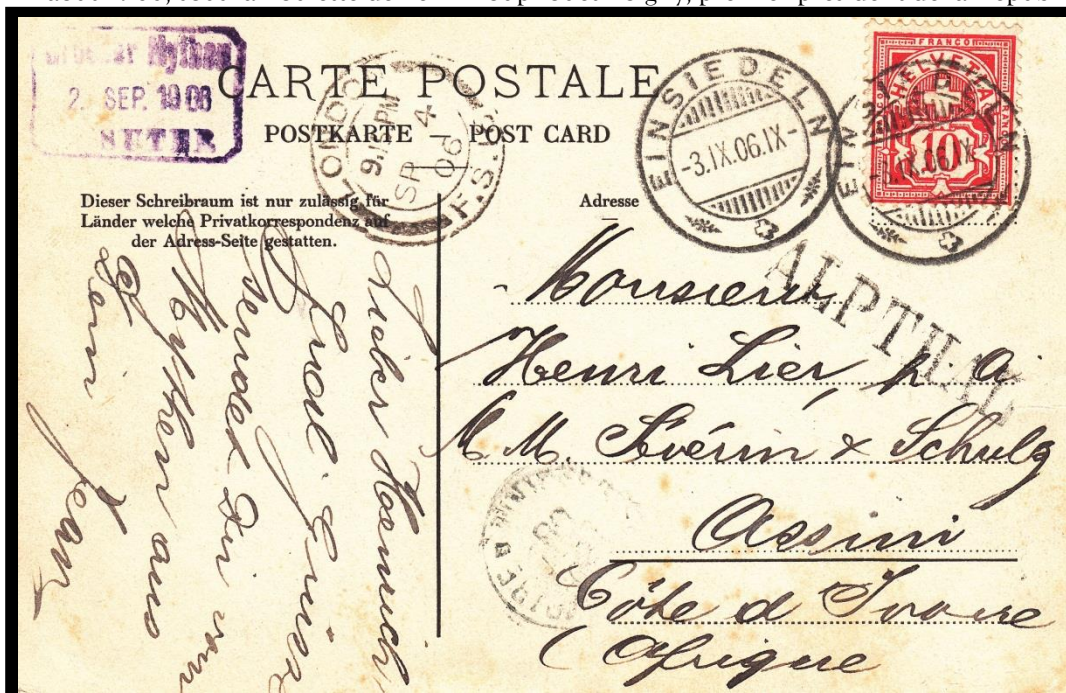 Grosser Mythen
2. SEP. 1906
SUTER
CARTE POSTALE
POSTKARTE – POST CARD
LONDON
9. PM
SP 4
06
F.S.
EINSIEDELN
-3.IX.06.IX-
FRANCO
HELVETIA
10
EINSIEDELN
-3.IX.06.IX-
Dieser Schreibraum ist nur zulässig für
Länder welche Privatkorrespondenz auf
der Adress-Seite gestatten.
Adresse
ALPTHAL
Monsieur
Henri Lier, p. a.
M. M. Sévérin & Schulz
Assini
Côte d Ivoire
(Afrique
Lieber Heinrich
sendet Dir vom
Mythen aus
Dein
Jean